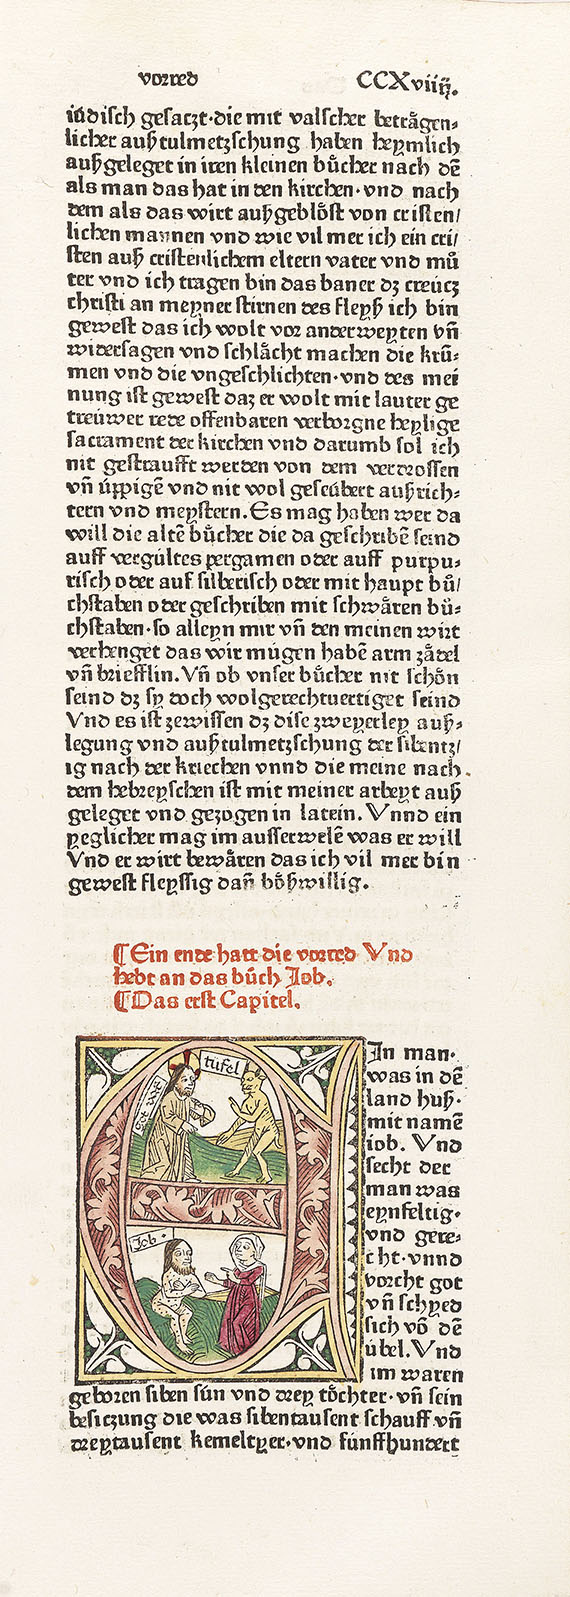 vorred CCXviiij.
iüdisch gesaczt·die mit valscher beträgen⸗
licher außtulmetzschung haben heymlich
außgeleget in iren kleinen bücher nach dē
als man das hat in den kirchen·vnd nach
dem als das wirt außgeblöst von cristen/
lichen mannen vnd wie vil mer ich ein cri/
sten auß cristenlichem eltern vater vnd mů
ter vnd ich tragen bin das baner dz creücz
christi an meyner stirnen des fleyß ich bin
gewest das ich wolt vor anderweyten vñ
widersagen vnd schlächt machen die krū⸗
men vnd die vngeschlichten·vnd des mei
nung ist gewest daz er wolt mit lauter ge
treüwer rede offenbaren verborgne heylige
sacrament der kirchen vnd darumb sol ich
nit gestraufft werden von dem verdrossen
vñ üppigē vnd nit wol geseübert außrich⸗
tern vnd meystern. Es mag haben wer da
will die altē bücher die da geschribē seind
auff vergültes pergamen oder auff purpu⸗
risch oder auf silberisch oder mit haupt bů/
chstaben oder geschriben mit schwären bů⸗
chstaben·so alleyn mir vñ den meinen wirt
verhenget das wir mügen habē arm zädel
vñ briefflin. Vñ ob vnser bücher nit schön
seind dz sy doch wolgerechtuertiget seind
Vnd es ist zewissen dz dise zweyerley auß⸗
legung vnd außtulmetzschung der sibentz/
ig nach der kriechen vnnd die meine nach
dem hebreyschen ist mit meiner arbeyt auß
geleget vnd gezogen in latein. Vnnd ein
yeglicher mag im ausserwelē was er will
Vnd er wirt bewären das ich vil mer bin
gewest fleyssig dañ bößwillig.
¶Ein ende hatt die vorred Vnd
hebt an das bůch Job.
¶Das erst Capitel.
tüfel
Job·
EIn man·
was in dē
land huß·
mit namē
iob. Vnd
secht der
man was
eynfeltig·
vnd gere⸗
cht·vnnd
vorcht got
vñ schyed
sich vō dē
übel. Vnd
im waren
geboren siben sün vnd drey töchter·vñ sein
besiczung die was sibentausent schauff vñ
dreytausent kemeltyer·vnd fünffhundert